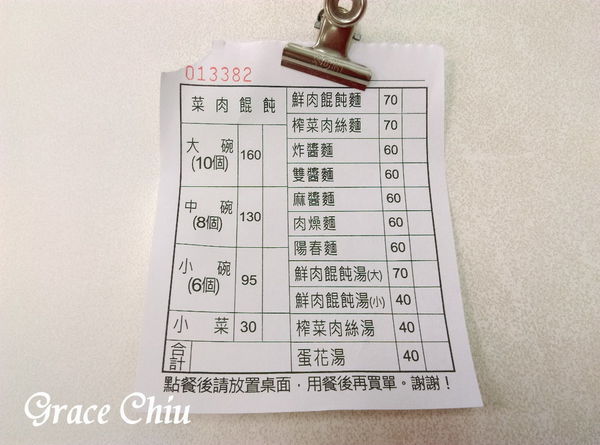 013382
菜肉餛飩
大碗
(10個)
160
中碗
(8個)
130
小碗
(6個)
95
小菜 30
合計
鮮肉餛飩麵 70
榨菜肉絲麵 70
炸醬麵 60
雙醬麵 60
麻醬麵 60
肉燥麵 60
陽春麵 60
鮮肉餛飩湯(大) 70
鮮肉餛飩湯(小) 40
榨菜肉絲湯 40
蛋花湯 40
點餐後請放置桌面，用餐後再買單。謝謝！
Grace Chiu